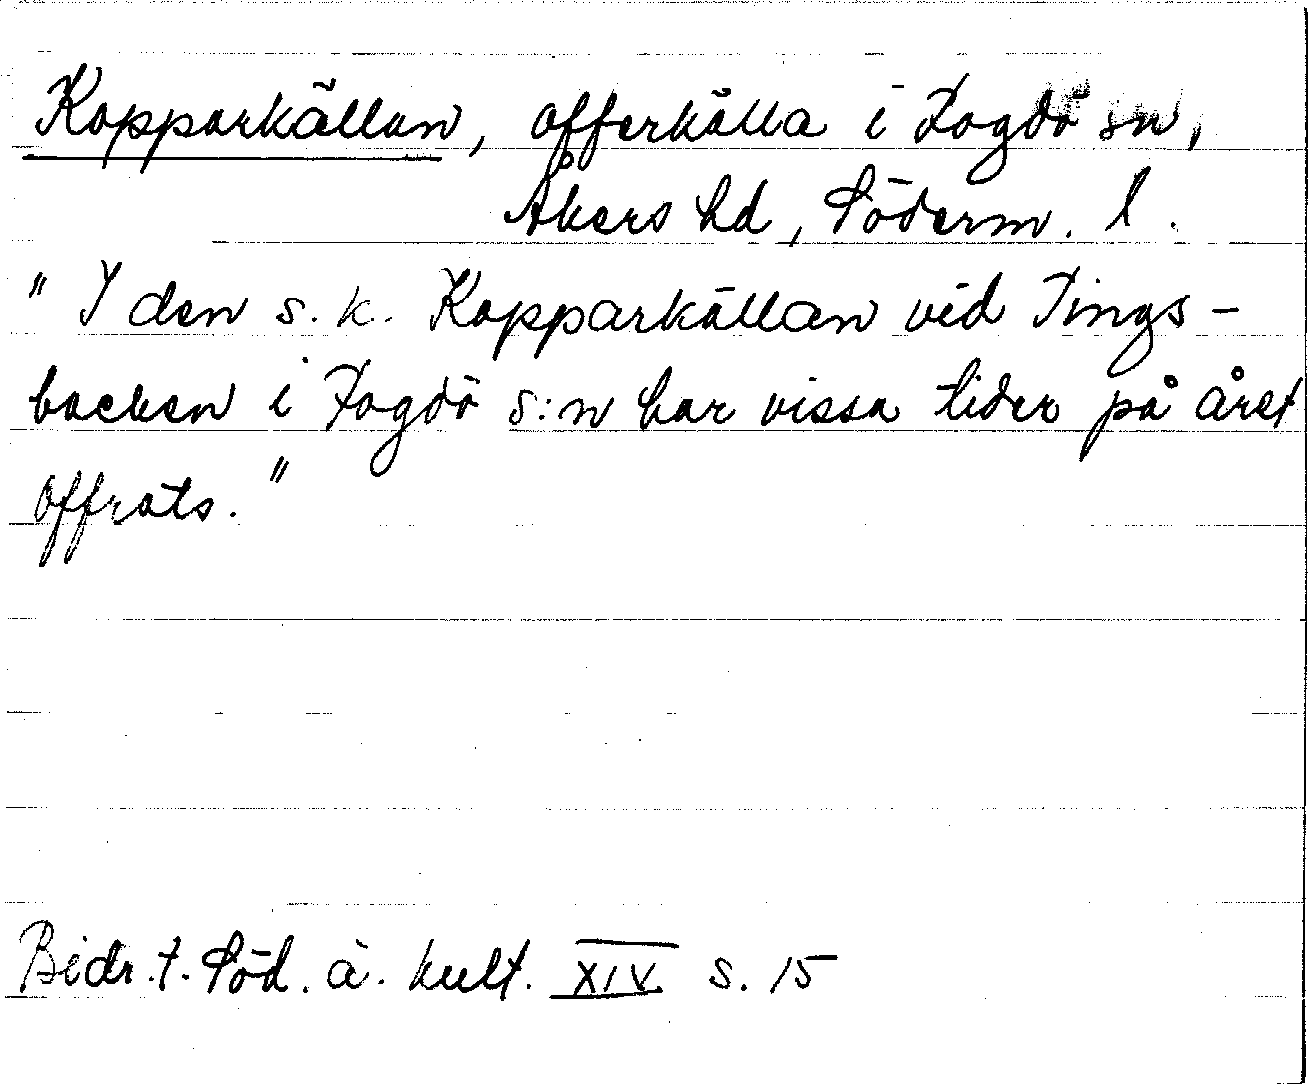 Kopparkällan, offerkälla i Fogdö sn,
Åkers hd, Söderm. l.
"I den s.k. Kopparkällan vid Tings-
backen i Fogdö s:n har vissa tider på året
offrats."
Bidr. t. Söd. ä. kult. XIV s. 15